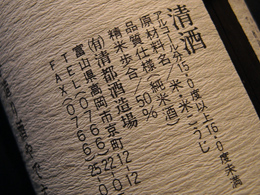 清酒
アルコール分/15.0度以上16.0度未満
原材料名/米・米こうじ
品質仕様/純米酒
精米歩合/50%
(有)清都酒造場
富山県高岡市京町12-12
TEL(0766)22-0
FAX(0766)25-